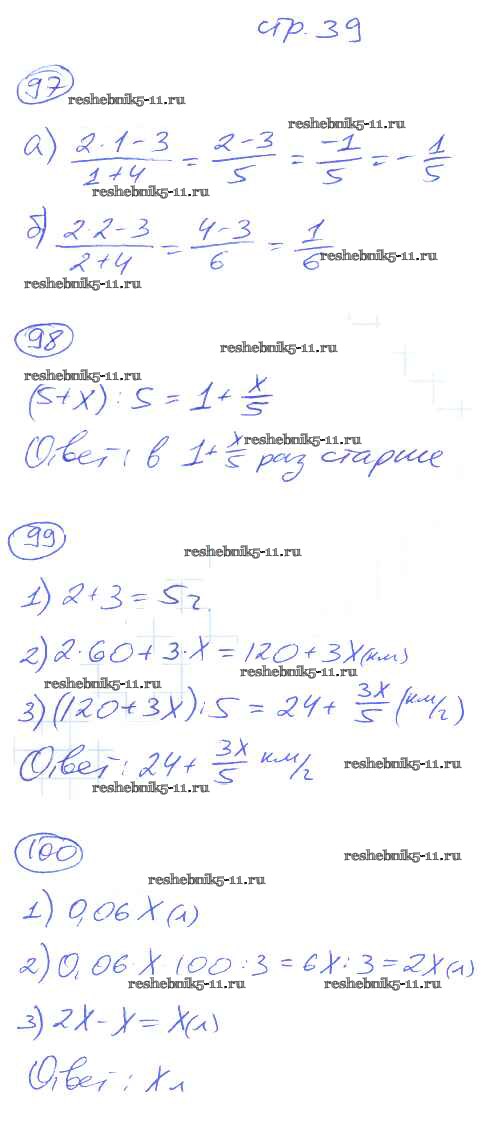 стр. 39
97
reshebnik5-11.ru
reshebnik5-11.ru
а) (2·1-3)/(1+4) = (2-3)/5 = -1/5 = -1/5
reshebnik5-11.ru
б) (2·2-3)/(2+4) = (4-3)/6 = 1/6
reshebnik5-11.ru
reshebnik5-11.ru
98
reshebnik5-11.ru
reshebnik5-11.ru
(5+x) : 5 = 1 + x/5
Ответ: в 1+x/5 раз старше
reshebnik5-11.ru
99
reshebnik5-11.ru
1) 2+3=5ч.
2) 2·60+3·x=120+3x(км)
reshebnik5-11.ru
reshebnik5-11.ru
3) (120+3x):5 = 24+ 3x/5 (км/ч)
Ответ: 24+ 3x/5 км/ч
reshebnik5-11.ru
reshebnik5-11.ru
100
reshebnik5-11.ru
reshebnik5-11.ru
1) 0,06 x (л)
2) 0,06·x 100:3 = 6x:3=2x(л)
reshebnik5-11.ru
reshebnik5-11.ru
3) 2x-x=x(л)
Ответ: x л